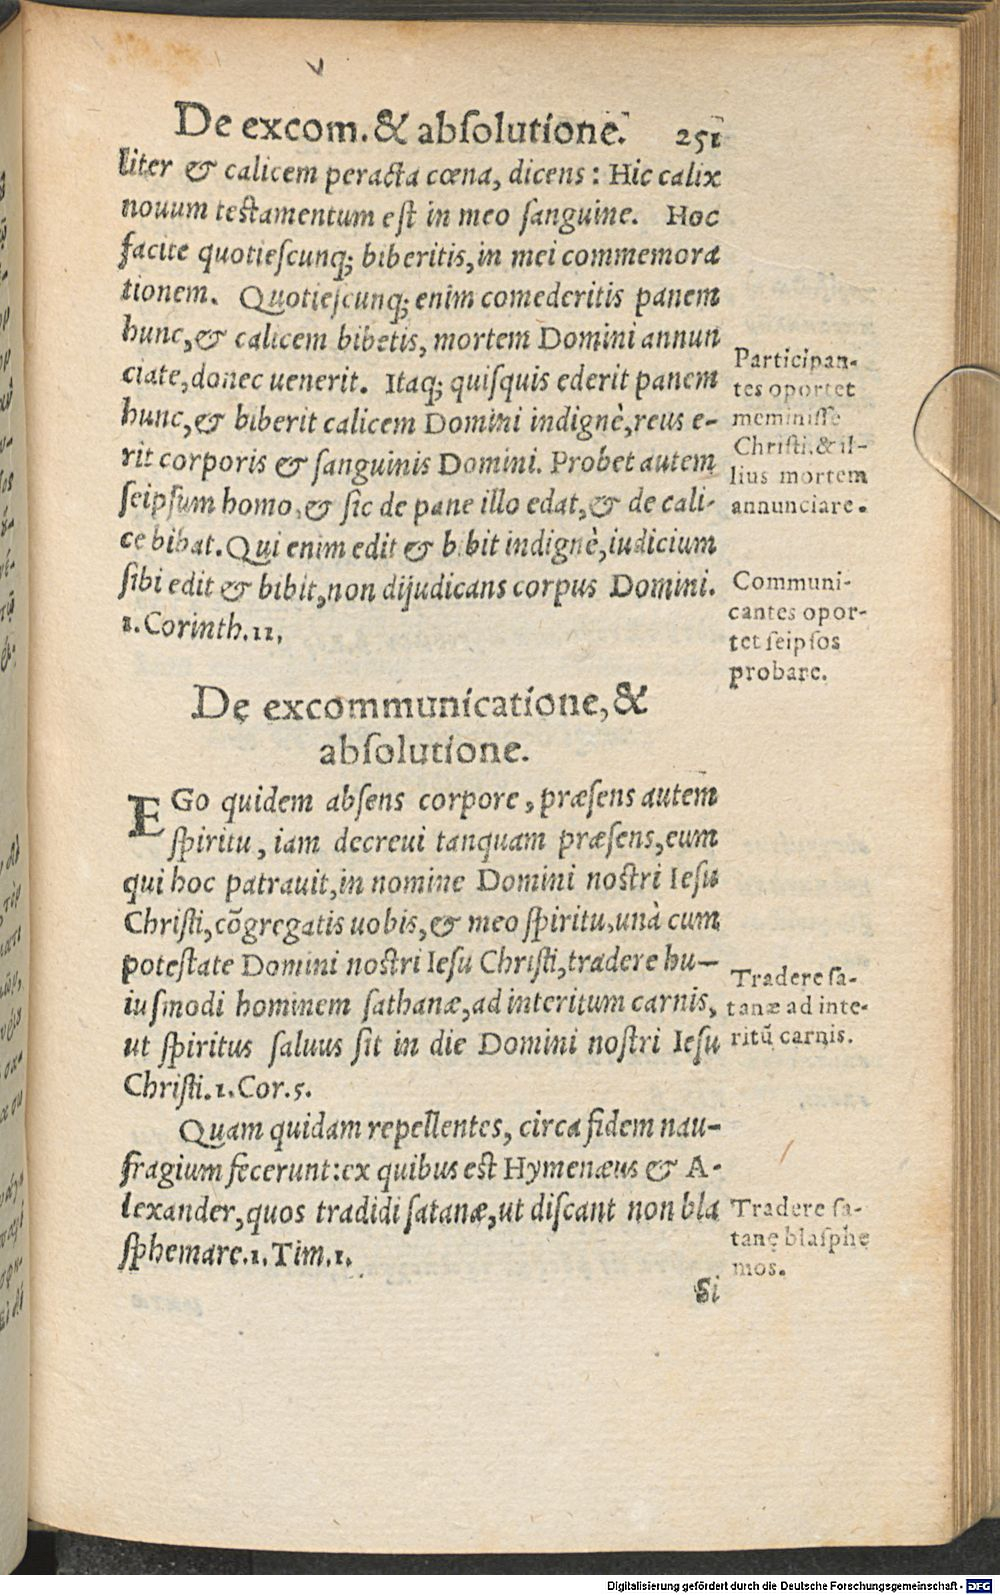 De excom. & absolutione. 251
liter & calicem peracta cœna, dicens: Hic calix
nouum testamentum est in meo sanguine. Hoc
facite quotiescunq; biberitis, in mei commemora
tionem. Quotiescunq; enim comederitis panem
hunc, & calicem bibetis, mortem Domini annun
ciate, donec uenerit. Itaq; quisquis ederit panem
hunc, & biberit calicem Domini indignè, reus e-
rit corporis & sanguinis Domini. Probet autem
seipsum homo, & sic de pane illo edat, & de cali-
ce bibat. Qui enim edit & bibit indignè, iudicium
sibi edit & bibit, non dijudicans corpus Domini.
1. Corinth. 11,
Participan-
tes oportet
meminisse
Christi, & il-
lius mortem
annunciare.
Communi-
cantes opor-
tet seipsos
probare.
De excommunicatione, &
absolutione.
EGo quidem absens corpore, præsens autem
spiritu, iam decreui tanquam præsens, eum
qui hoc patrauit, in nomine Domini nostri Iesu
Christi, cõgregatis uobis, & meo spiritu, unà cum
potestate Domini nostri Iesu Christi, tradere hu-
iusmodi hominem sathanæ, ad interitum carnis,
ut spiritus saluus sit in die Domini nostri Iesu
Christi. 1. Cor. 5.
Tradere sa-
tanæ ad inte-
ritũ carnis.
Quam quidam repellentes, circa fidem nau-
fragium fecerunt: ex quibus est Hymenæus & A-
lexander, quos tradidi satanæ, ut discant non bla
sphemare. 1. Tim. 1.
Tradere sa-
tanę blasphe
mos.
Si
Digitalisierung gefördert durch die Deutsche Forschungsgemeinschaft - DFG